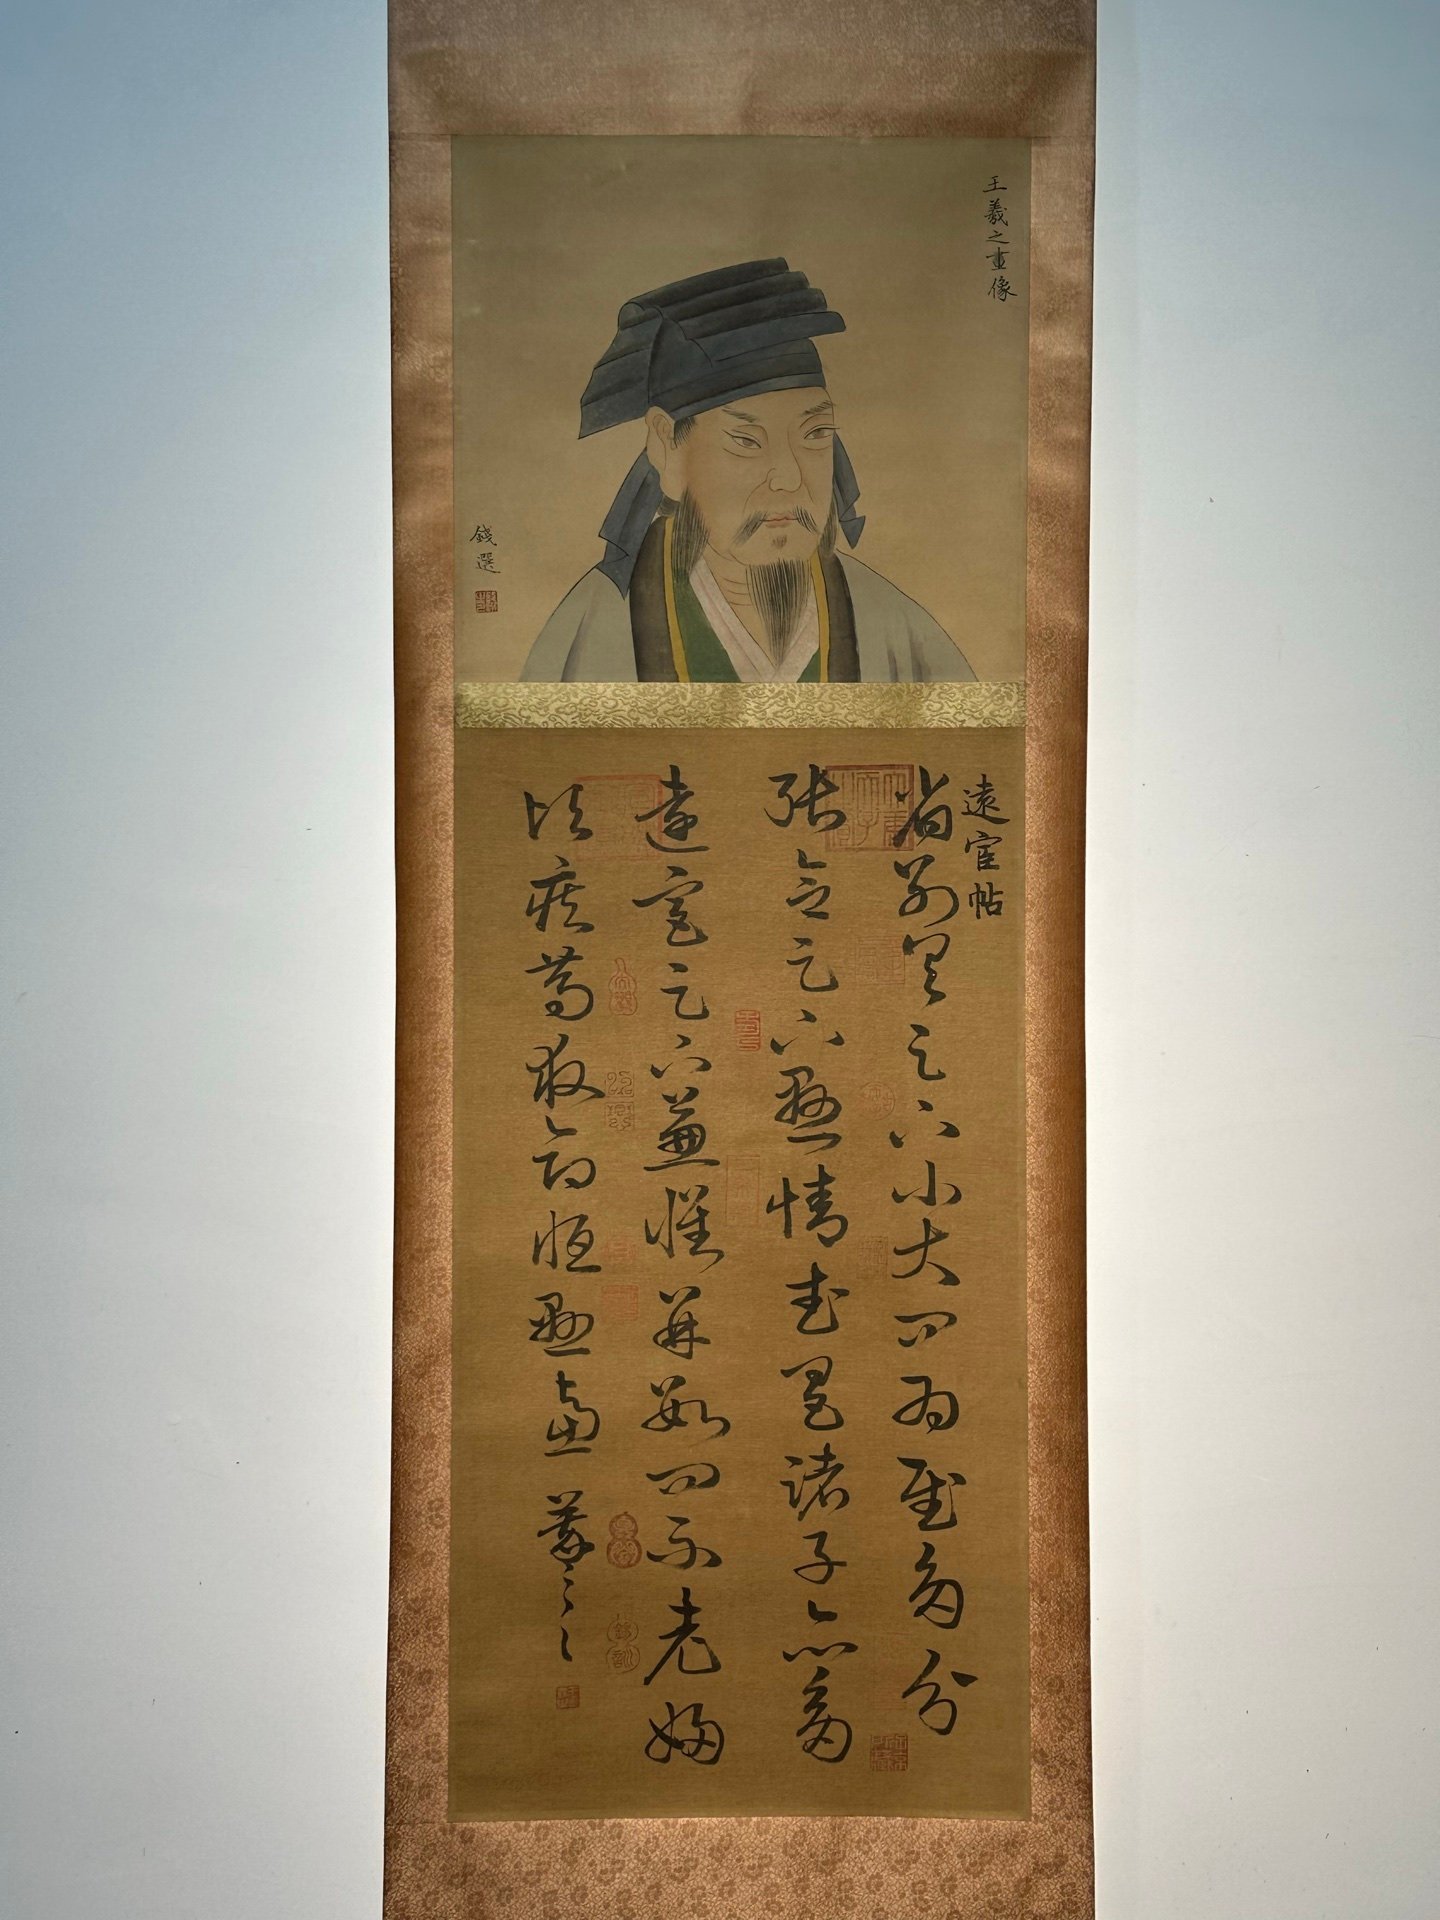 王羲之畫像
錢選
遠宦帖
省别具足下小大問為慰多分
張念足下懸情武昌諸子亦多
遠宦足下兼懷並數問不老婦
頃疾篤救命恒憂慮羲之